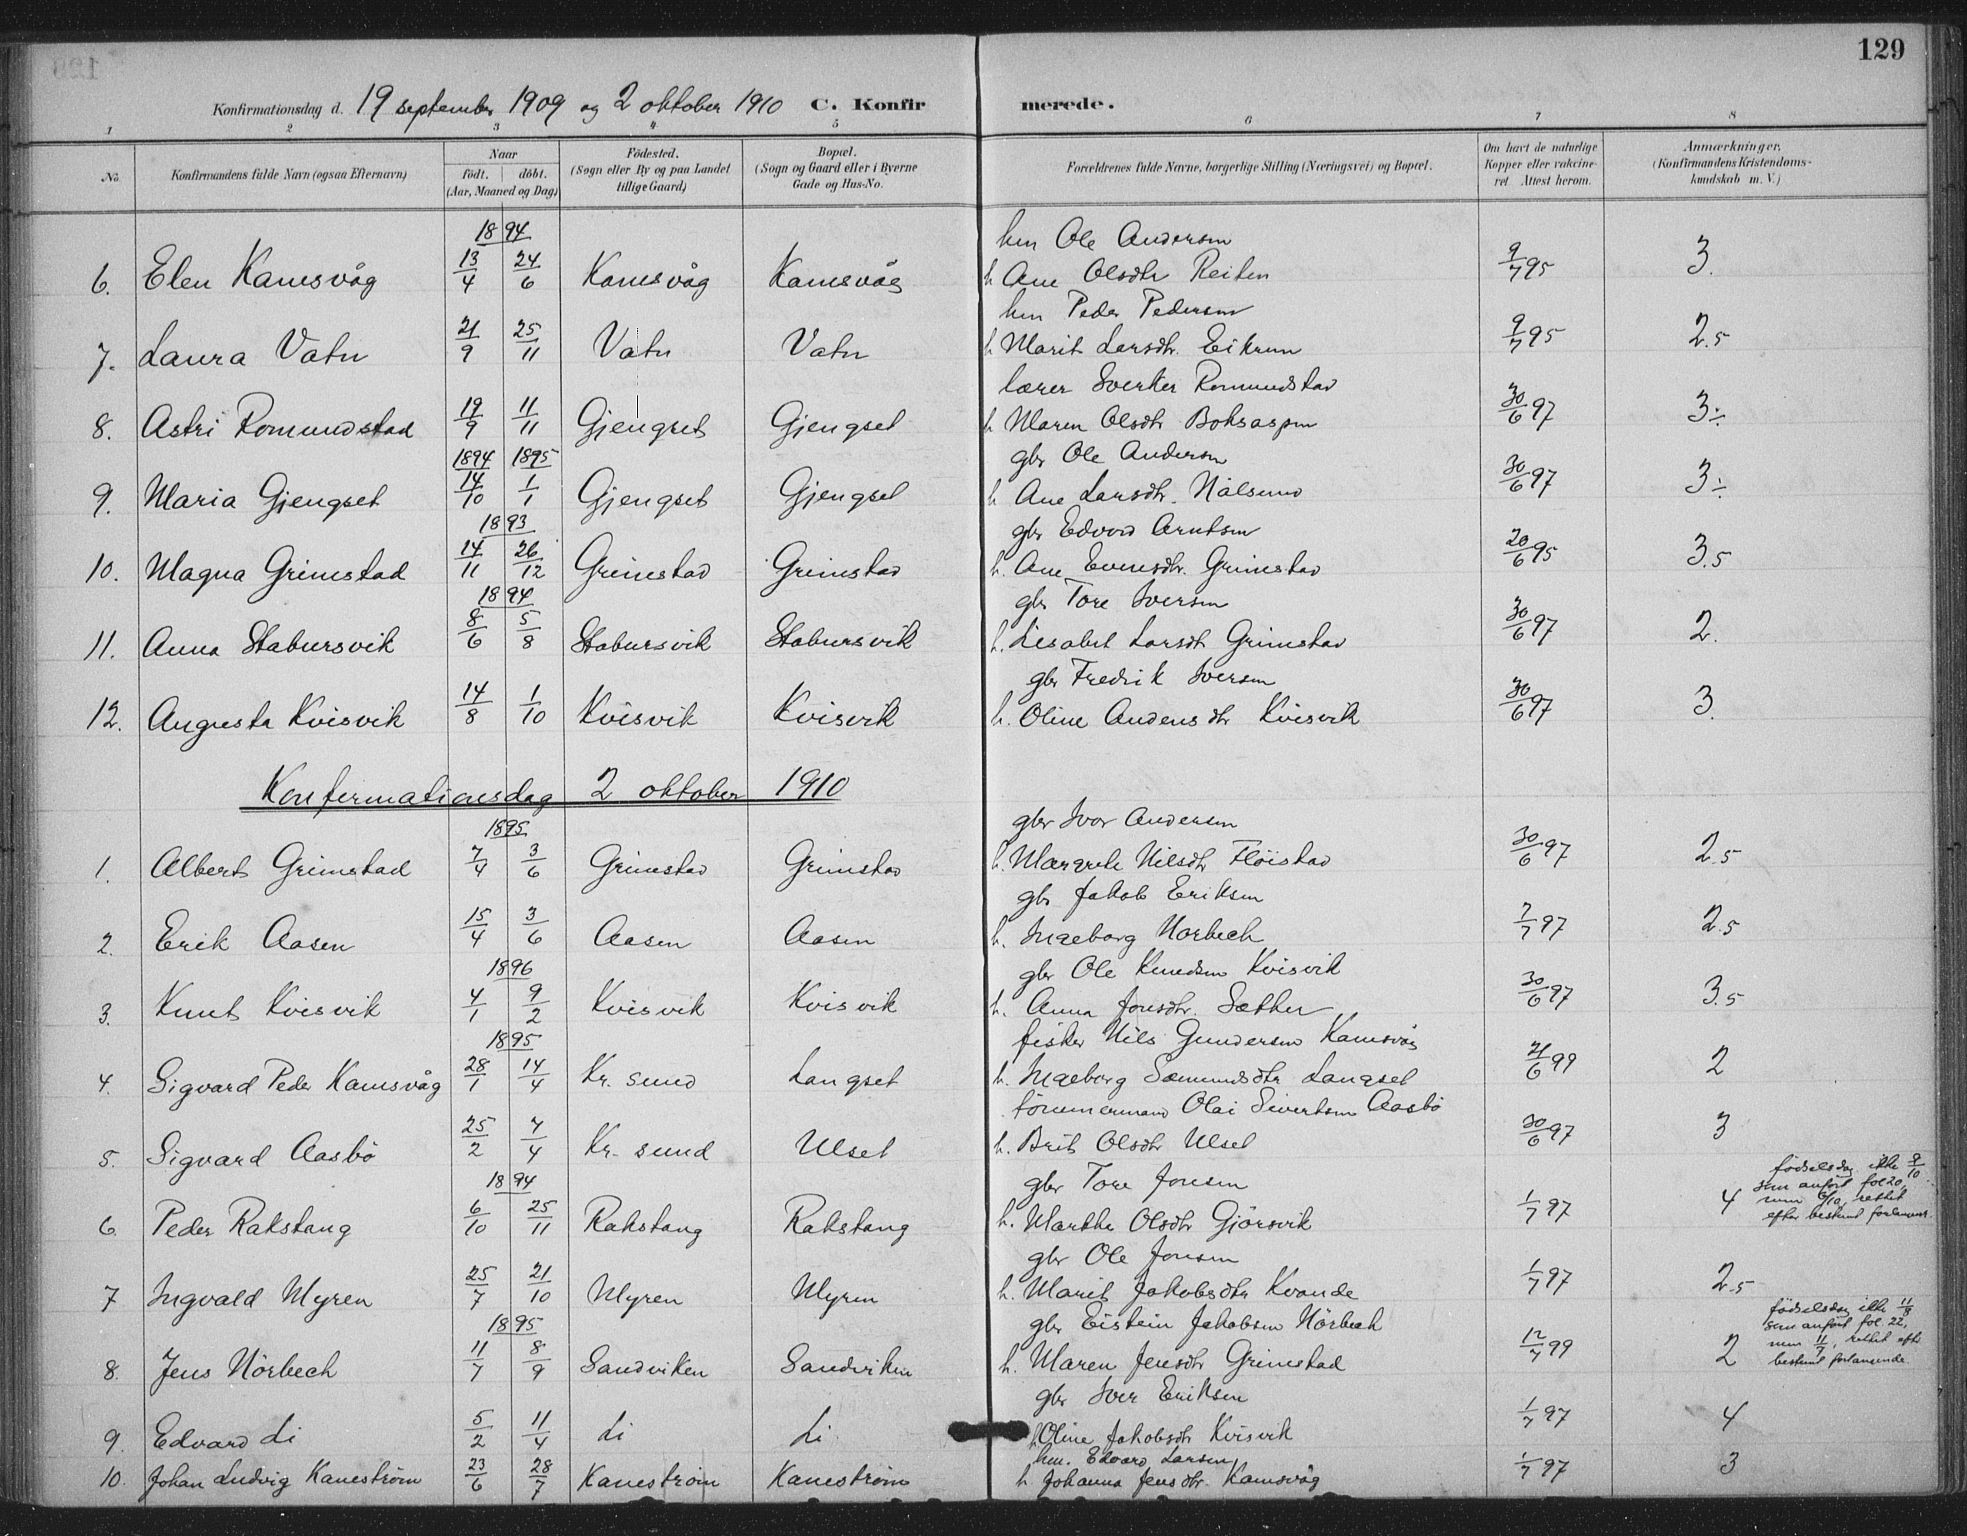 129
Konfirmationsdag d. 19 september 1909 og 2 oktober 1910 C. Konfirmerede.
1 2 3 4 5 6 7 8
No. Konfirmandens fulde Navn (ogsaa Efternavn) Naar født. døbt. (Aar, Maaned og Dag) Fødested. (Sogn eller By og paa Landet tillige Gaard) Bopæl. (Sogn og Gaard eller i Byerne Gade og Hus-No. Forældrenes fulde Navne, borgerlige Stilling (Næringsvei) og Bopæl. Om havt de naturlige Kopper eller vakcineret. Attest herom. Anmærkninger. (Konfirmandens Kristendomskundskab m. V.)
1894
hm Ole Andersen
6. Elen Kanesvåg 13/4 24/6 Kanesvåg Kanesvåg h Ane Olsdtr Reiten 9/7 95 3.
hm Peder Pedersen
7. Laura Vatn 21/9 25/11 Vatn Vatn h Marit Larsdtr. Eikrem 9/7 95 2.5
lærer Sverker Romundstad
8. Astri Romundstad 19/9 11/11 Gjengset Gjengset h Maren Olsdtr Boksaspen 30/6 97 3÷
1894 1895 gbr Ole Andersen
9. Maria Gjengset 14/10 1/1 Gjengset Gjengset h. Ane Larsdtr. Nålsund 30/6 97 3÷
1893 gbr Edvard Arntsen
10. Magna Grimstad 14/11 26/12 Grimstad Grimstad h. Ane Evensdtr. Grimstad 20/6 95 3.5
1894 gbr Tore Iversen
11. Anna Stabursvik 8/6 5/8 Stabursvik Stabursvik h. Lisabet Larsdtr Grimstad 30/6 97 2.
gbr Fredrik Iversen
12. Augusta Kvisvik 14/8 1/10 Kvisvik Kvisvik h. Oline Andersdtr Kvisvik 30/6 97 3.
Konfirmationsdag 2 oktober 1910
1895 gbr Ivar Andersen
1. Albert Grimstad 7/4 3/6 Grimstad Grimstad h. Margrete Nilsdtr Fløistad 30/6 97 2.5
gbr Jakob Eriksen
2. Erik Aasen 15/4 3/6 Aasen Aasen h. Ingeborg Norbech 7/7 97 2.5
1896 gbr Ole Knudsen Kvisvik
3. Knut Kvisvik 4/1 9/2 Kvisvik Kvisvik h. Anna Jonsdtr. Sæther 30/6 97 3.5
1895 fisker Nils Gundersen Kanesvåg
4. Sigvard Peder Kanesvåg 28/1 14/4 Kr. sund Langset h. Ingeborg Sæmundsdtr Langset 21/6 99 2
tømmermand Olai Sivertsen Aasbø
5. Sigvard Aasbø 25/2 7/4 Kr. sund Ulset h. Brit Olsdtr Ulset 30/6 97 3
1894 gbr Tore Jonsen
6. Peder Rakstang 6/10 25/11 Rakstang Rakstang h. Marthe Olsdtr Gjørsvik 1/7 97 4
fødselsdag ikke 9/10
som anført fol 20,
men 6/10, rettet
efter bestemt forlangende.
gbr Ole Jonsen
7 Ingvald Myren 25/7 21/10 Myren Myren h. Marit Jakobsdtr Kvande 1/7 97 2.5
1895 gbr Eistein Jakobsen Nørbech
8. Jens Nørbech 11/7 8/9 Sandviken Sandviken h. Maren Jensdtr Grimstad 12/7 99 2
fødselsdag ikke 11/8
som anført fol. 22,
men 11/7, rettet efter
bestemt forlangende.
gbr Iver Eriksen
9. Edvard Li 5/2 11/4 Li Li h. Oline Jakobsdtr Kvisvik 1/7 97 4
hm. Edvard Larsen
10. Johan Ludvig Kanestrøm 23/6 28/7 Kanestrøm Kanestrøm h Johanna Jensdtr. Kanesvåg 1/7 97 3